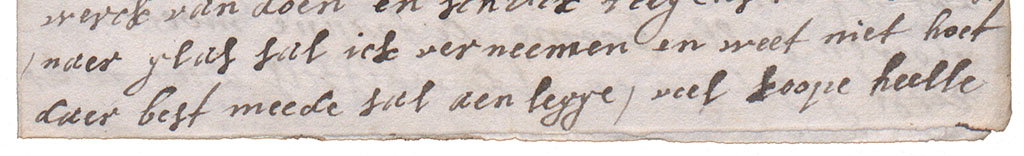 werck van doen en
/ naer glas sal ick verneemen en weet niet hoet
daer best meede sal aen legge / veel koope heelle